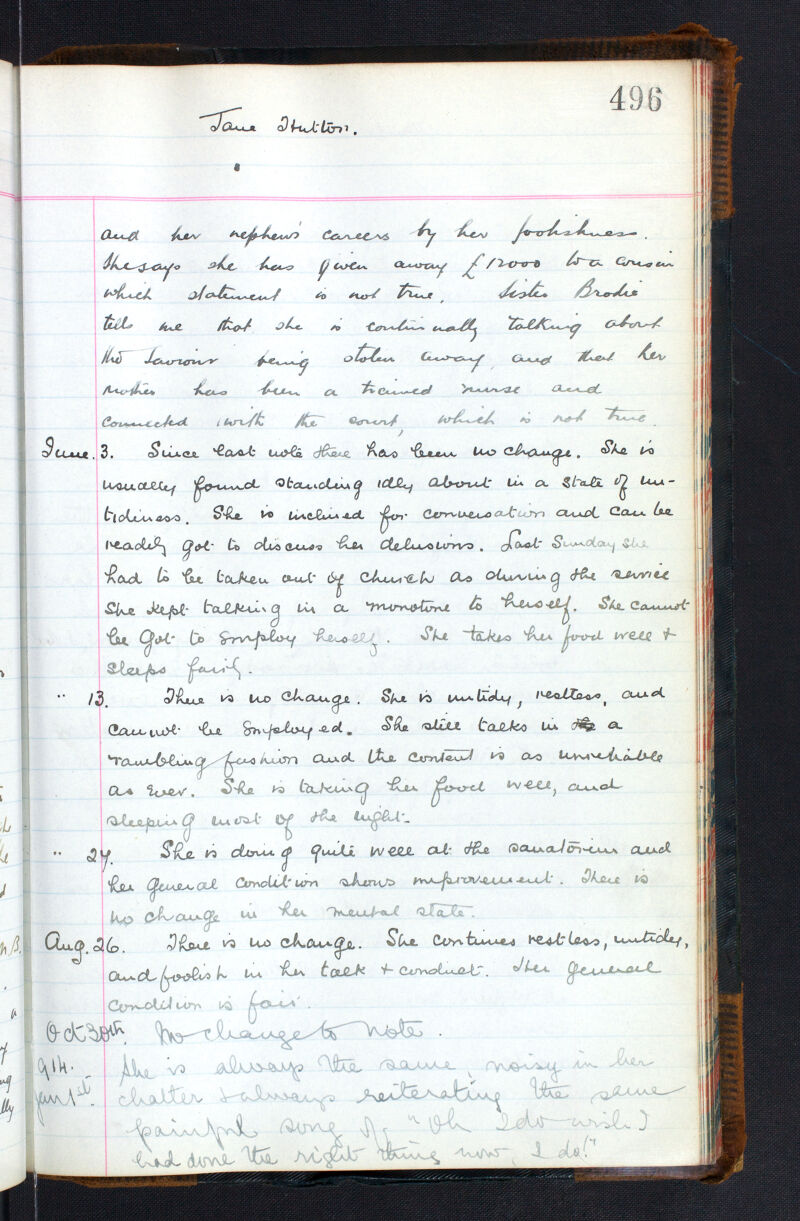 496
Jane Hutton.
and her nephew's careers by her foolishness.
She says she has given away £12000 to a cousin
which statement is not true. Sister Brodie
tells me that she is continually talking about
the Saviour being stolen away and that her
mother has been a trained nurse and
connected with the court, which is not true.
June. 3. Since last note there has been no change. She is
usually found standing idly about in a state of un-
tidiness. She is inclined for conversation and can be
readily got to discuss her delusions. Last Sunday she
had to be taken out of church as during the service
she kept talking in a monotone to herself. She cannot
be got to employ herself. She takes her food well +
sleeps fairly.
" 13. There is no change. She is untidy, restless, and
cannot be employed. She still talks in a
rambling fashion and the content is as unreliable
as ever. She is taking her food well, and
sleeping most of the night.
" 27. She is doing quite well at the sanatorium and
her general condition shows improvement. There is
no change in her mental state.
Aug. 26. There is no change. She continues restless, untidy,
and foolish in her talk + conduct. Her general
condition is fair.
Oct 30th. No change to note.
914. She is always the same, noisy in her
Jan 1st. chatter + always reiterating the same
painful song of "Oh I do wish I
had done the right thing now, I do!"